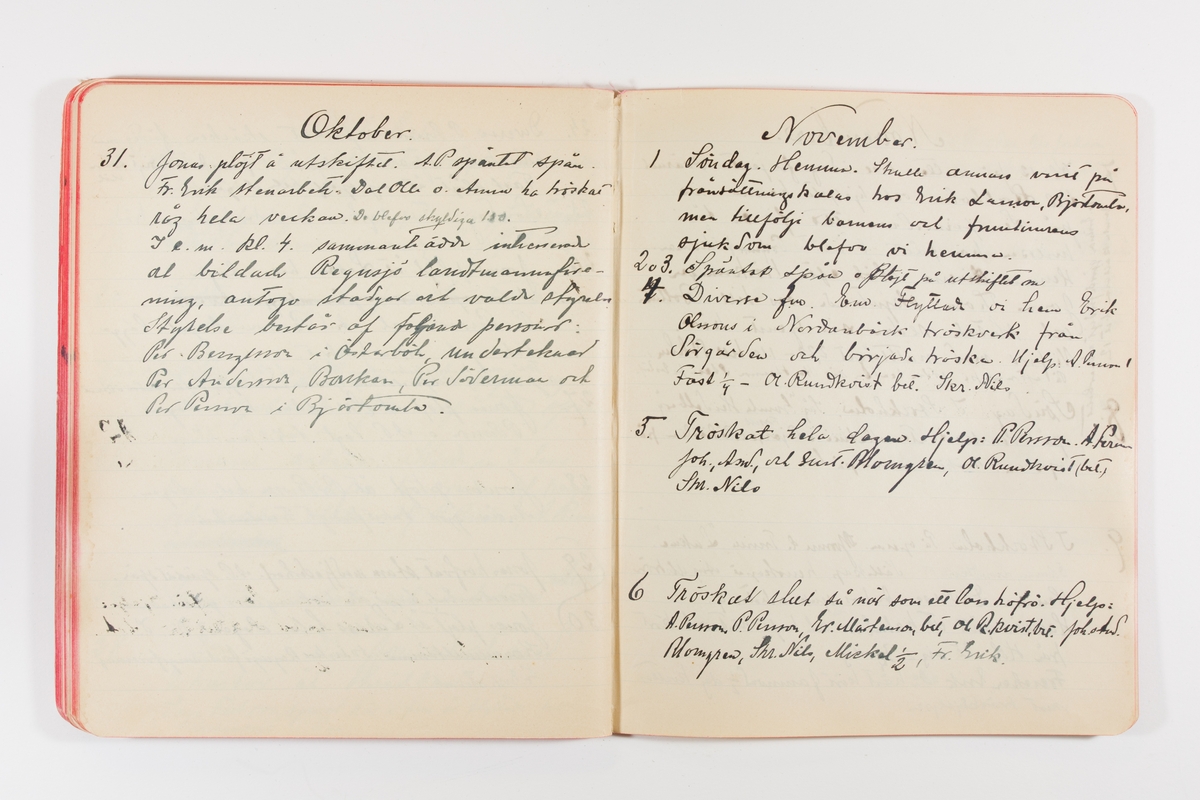 Oktober.
31. Jonas plöjt å utskiftet. A.P. späntat spån.
Fr. Erik stenarbete. Dal Olle o. Anna ha tröskat
råg hela veckan. De blefvo skyldiga
I e.m. kl. 4. sammanträdde intresserade
at bildade Regnsjö landtmannaföre-
ning, antogo stadgar och valde styrelse
Styrelse består af följande personer:
Per Bengtsson i Österböle, undertecknad
Per Andersson, Backan, Per Söderman och
Per Persson i Björtomta.
November.
1 Söndag. Hemma. Skulle annars varit på
kalas hos Erik Larsson, Björtomta,
men tillfölje barnens och fruntimrens
sjukdom blefvo vi hemma.
2 o 3. Späntat spån o Plöjt på utskiftet em
4. Diverse fm. Em Flyttade vi hem Erik
Olssons i Nordanbäck tröskverk från
Sörgården och började tröska. Hjelp: A. Persson 1
Fäst ¼ – O. Rundkvist bet. Skr. Nils
5. Tröskat hela dagen. Hjelp: P. Persson. A Persson
Joh. And., och Gust. Blomgren, O. Rundkvist (bet)
Skr. Nils
6 Tröskat slut så när som ett lass höfrö. Hjelp:
A. Persson, P. Persson, Er. Mårtensson, bet, O. R.kvist, bet. Joh. And.
Blomgren, Skr. Nils, Mickel ½, Fr. Erik.